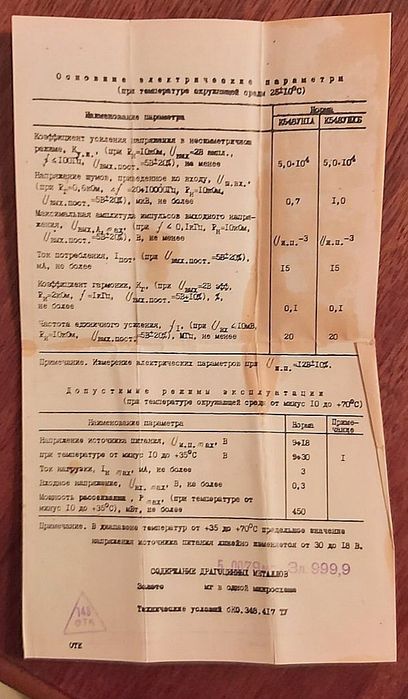 Основные электрические параметры
(при температуре окружающей среды 25±10°С)
Наименование параметра
Норма
К548УН1А К548УН1Б
Коэффициент усиления напряжения в несимметричном
режиме, Ку.и. (при Рн=10кОм, Uвых=2В ампл.,
f ≤100Гц, Uвых.пост.=5В±20%), не менее
5,0·10⁴ 5,0·10⁴
Напряжение шумов, приведенное ко входу, Uш.вх.
(при Рг=0,6кОм, Δf =20÷10000Гц, Рн=10кОм,
Uвых.пост.=5В±20%), мкВ, не более
0,7 1,0
Максимальная амплитуда импульсов выходного напря-
жения, Uвых.А.max (при f ≤ 0,1кГц, Рн=10кОм,
Uвых.пост.=5В±20%), В, не менее
Uи.п.-3 Uи.п.-3
Ток потребления, Iпот. (при Uвых.пост.=5В±20%)
мА, не более
15 15
Коэффициент гармоник, Кг, (при Uвых=2В эфф.
Рн=2кОм, f=1кГц, Uвых.пост.=5В±10%), %,
не более
0,1 0,1
Частота единичного усиления, f1, (при Uвх ≤10мВ,
Рн=10кОм, Uвых.пост.=5В±20%), МГц, не менее
20 20
Примечание. Измерение электрических параметров при Uи.п.=12В±10%.
Допустимые режимы эксплуатации
(при температуре окружающей среды от минус 10 до +70°С)
Наименование параметра Норма Приме-
чание
Напряжение источника питания, Uи.п.max, В 9÷18
при температуре от минус 10 до +35°С В 9÷30 1
Ток нагрузки, Iн max, мА, не более 3
Входное напряжение, Uвх.max, В, не более 0,3
Мощность рассеивания, Рmax, (при температуре от
минус 10 до +35°С), мВт, не более 450
Примечание. В диапазоне температур от +35 до +70°С предельное значение
напряжения источника питания линейно изменяется от 30 до 18 В.
СОДЕРЖАНИЕ ДРАГОЦЕННЫХ МЕТАЛЛОВ
Зл 999,9
Золото мг в одной микросхеме
Технические условия бК0.348.417 ТУ
143
ОТК
ОТК